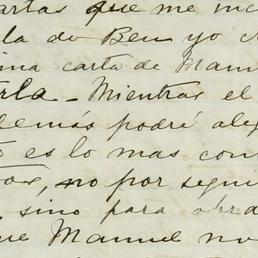 artas que me inc
la de Ben yo
ma carta de Manu
rla - Mientras el
demás podré ale
es lo mas con
no por segui
, sino para obra
ue Manuel no